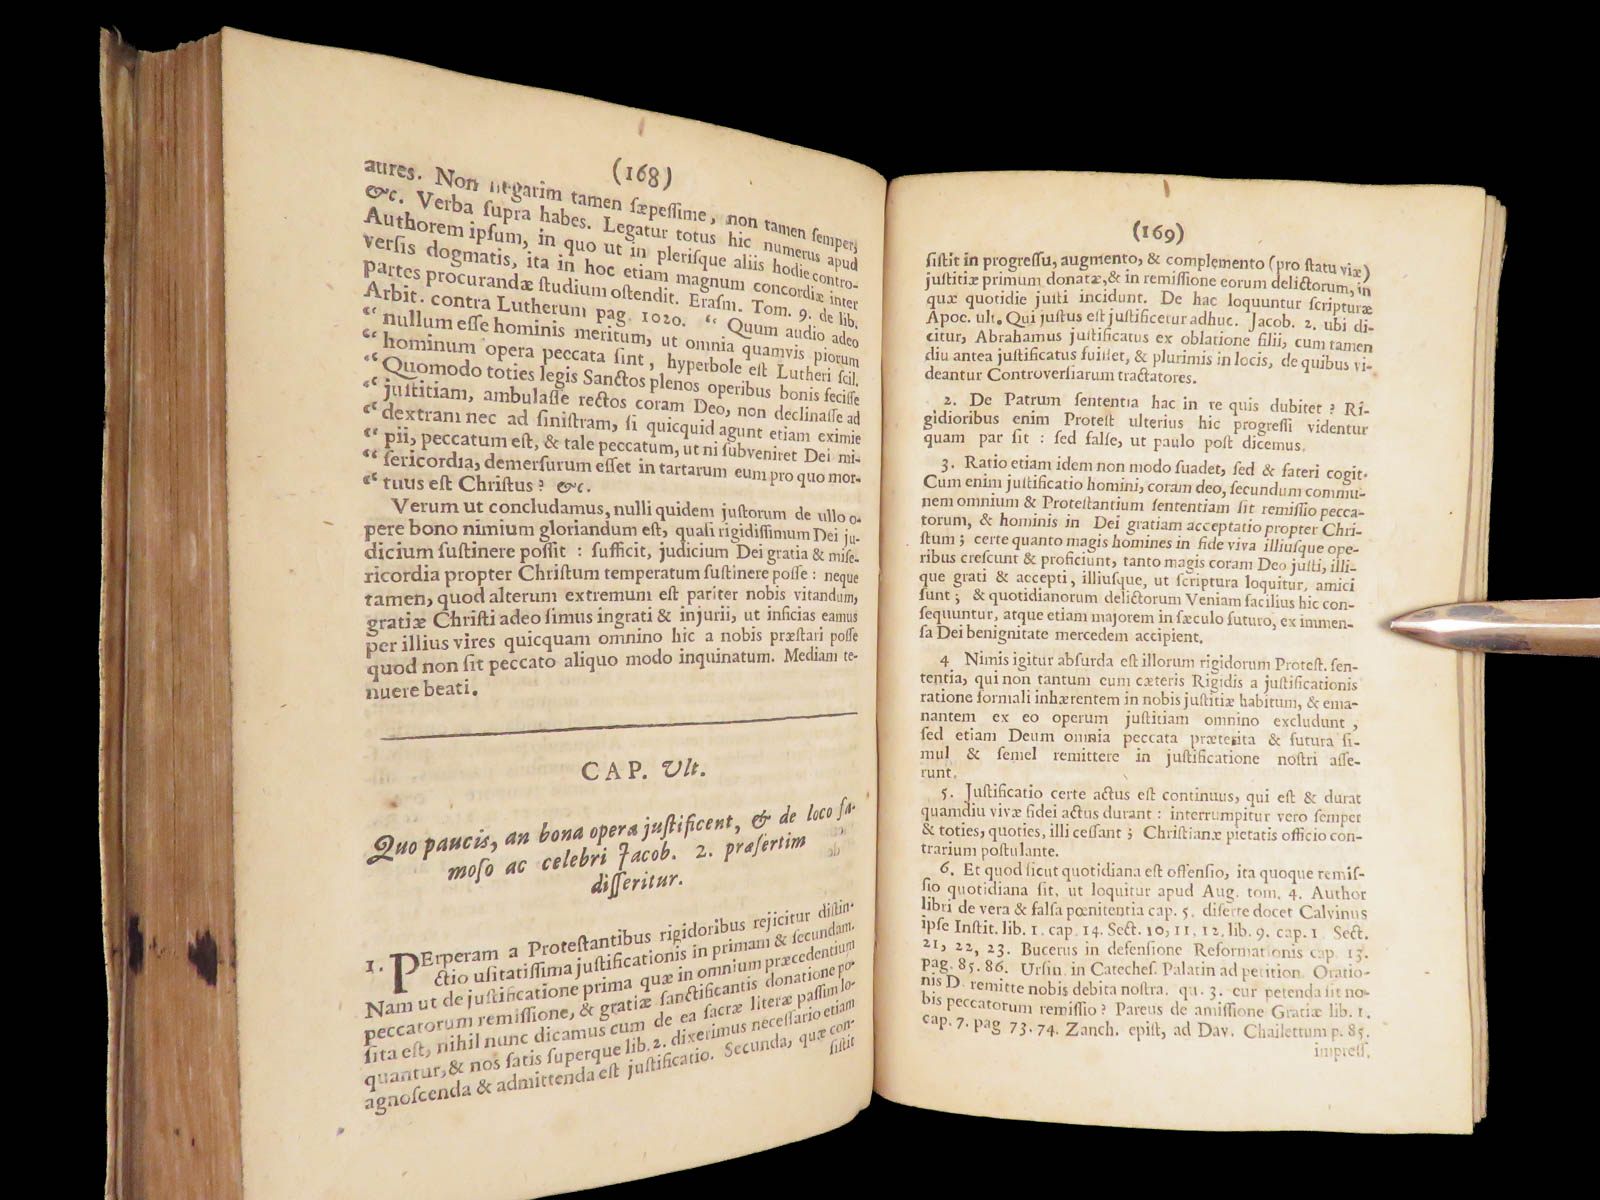 (168)
aures. Non negarim tamen sæpessime, non tamen semper,
&c. Verba supra habes. Legatur totus hic numerus apud
Authorem ipsum, in quo ut in plerisque aliis hodie contro-
versis dogmatis, ita in hoc etiam magnum concordiæ inter
partes procurandæ studium ostendit. Erasm. Tom. 9. de lib.
Arbit. contra Lutherum pag. 1020. “ Quum audio adeo
“ nullum esse hominis meritum, ut omnia quamvis piorum
“ hominum opera peccata sint, hyperbole est Lutheri scil.
“ Quomodo toties legis Sanctos plenos operibus bonis fecisse
“ justitiam, ambulasse rectos coram Deo, non declinasse ad
“ dextram nec ad sinistram, si quicquid agunt etiam eximie
“ pii, peccatum est, & tale peccatum, ut ni subveniret Dei mi-
“ sericordia, demersurum esset in tartarum eum pro quo mor-
“ tuus est Christus? &c.
Verum ut concludamus, nulli quidem justorum de ullo o-
pere bono nimium gloriandum est, quasi rigidissimum Dei ju-
dicium sustinere possit : sufficit, judicium Dei gratia & mise-
ricordia propter Christum temperatum sustinere posse : neque
tamen, quod alterum extremum est pariter nobis vitandum,
gratiæ Christi adeo simus ingrati & injurii, ut inficias eamus
per illius vires quicquam omnino hic a nobis præstari posse
quod non sit peccato aliquo modo inquinatum. Mediam te-
nuere beati.
CAP. Ult.
Quo paucis, an bona opera justificent, & de loco fa-
moso ac celebri Jacob. 2. præsertim
disseritur.
1. PErperam a Protestantibus rigidoribus rejicitur distin-
ctio usitatissima justificationis in primam & secundam.
Nam ut de justificatione prima quæ in omnium præcedentium
peccatorum remissione, & gratiæ sanctificantis donatione po-
sita est, nihil nunc dicamus cum de ea sacræ literæ passim lo-
quantur, & nos satis superque lib. 2. dixerimus necessario etiam
agnoscenda & admittenda est justificatio. Secunda, quæ con-
sistit
(169)
sistit in progressu, augmento, & complemento (pro statu viæ)
justitiæ primum donatæ, & in remissione eorum delictorum, in
quæ quotidie justi incidunt. De hac loquuntur scripturæ
Apoc. ult. Qui justus est justificetur adhuc. Jacob. 2. ubi di-
citur, Abrahamus justificatus ex oblatione filii, cum tamen
diu antea justificatus fuisset, & plurimis in locis, de quibus vi-
deantur Controversiarum tractatores.
2. De Patrum sententia hac in re quis dubitet ? Ri-
gidioribus enim Protest ulterius hic progressi videntur
quam par sit : sed false, ut paulo post dicemus.
3. Ratio etiam idem non modo suadet, sed & fateri cogit.
Cum enim justificatio homini, coram deo, secundum commu-
nem omnium & Protestantium sententiam sit remissio pecca-
torum, & hominis in Dei gratiam acceptatio propter Chri-
stum ; certe quanto magis homines in fide viva illiusque ope-
ribus crescunt & proficiunt, tanto magis coram Deo justi, illi-
que grati & accepti, illiusque, ut scriptura loquitur, amici
sunt ; & quotidianorum delictorum Veniam facilius hic con-
sequuntur, atque etiam majorem in sæculo futuro, ex immen-
sa Dei benignitate mercedem accipient.
4 Nimis igitur absurda est illorum rigidorum Protest. sen-
tentia, qui non tantum cum cæteris Rigidis a justificationis
ratione formali inhærentem in nobis justitiæ habitum, & ema-
nantem ex eo operum justitiam omnino excludunt ,
sed etiam Deum omnia peccata præterita & futura si-
mul & semel remittere in justificatione nostri asse-
runt.
5. Justificatio certe actus est continuus, qui est & durat
quamdiu vivæ fidei actus durant : interrumpitur vero semper
& toties, quoties, illi cessant ; Christianæ pietatis officio con-
trarium postulante.
6. Et quod sicut quotidiana est offensio, ita quoque remis-
sio quotidiana sit, ut loquitur apud Aug. tom. 4. Author
libri de vera & falsa pœnitentia cap. 5. diserte docet Calvinus
ipse Instit. lib. 1. cap. 14. Sect. 10, 11, 12, lib. 9. cap. 1 Sect.
21, 22, 23. Bucerus in defensione Reformationis cap. 13.
pag. 85. 86. Ursin. in Cateches. Palatin ad petition. Oratio-
nis D. remitte nobis debita nostra. qu. 3. cur petenda sit no-
bis peccatorum remissio ? Pareus de amissione Gratiæ lib. 1.
cap. 7. pag 73. 74. Zanch. epist, ad Dav. Chailettum p. 85.
impress.